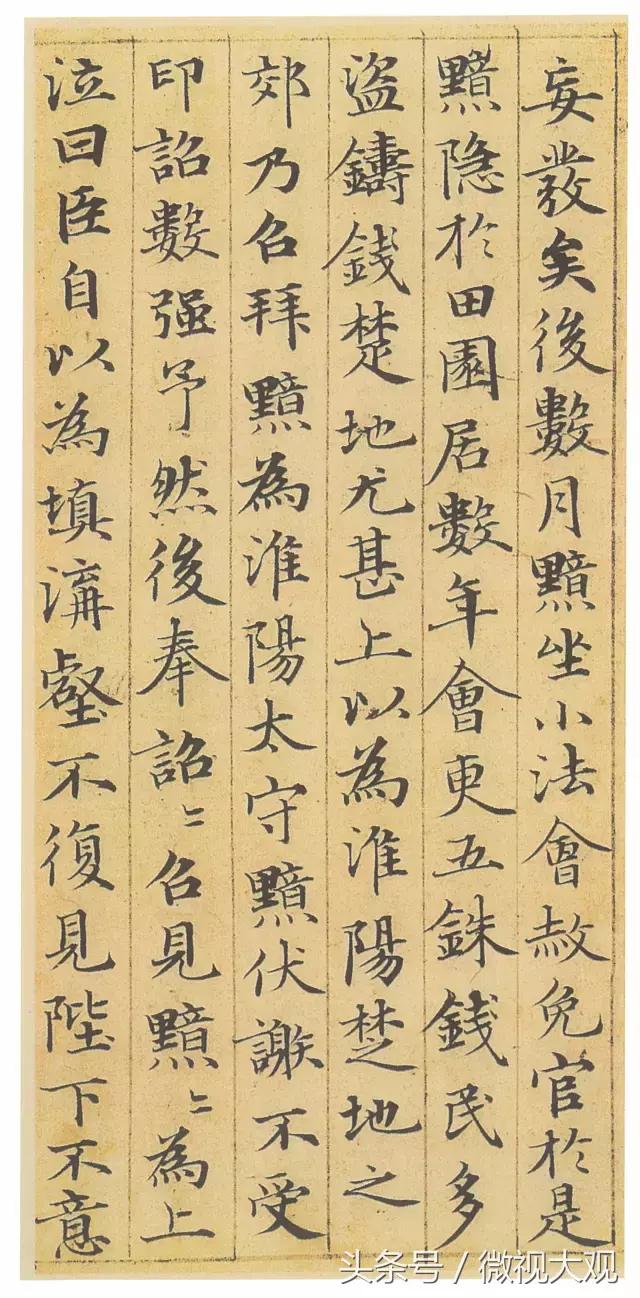 妄發矣後數月黯坐小法會赦免官於是
黯隐於田園居數年會更五銖錢民多
盜鑄錢楚地尤甚上以為淮陽楚地之
郊乃召拜黯為淮陽太守黯伏謝不受
印詔數强予然後奉詔〻召見黯〻為上
泣曰臣自以為填溝壑不復見陛下不意
头条号 / 微视大观